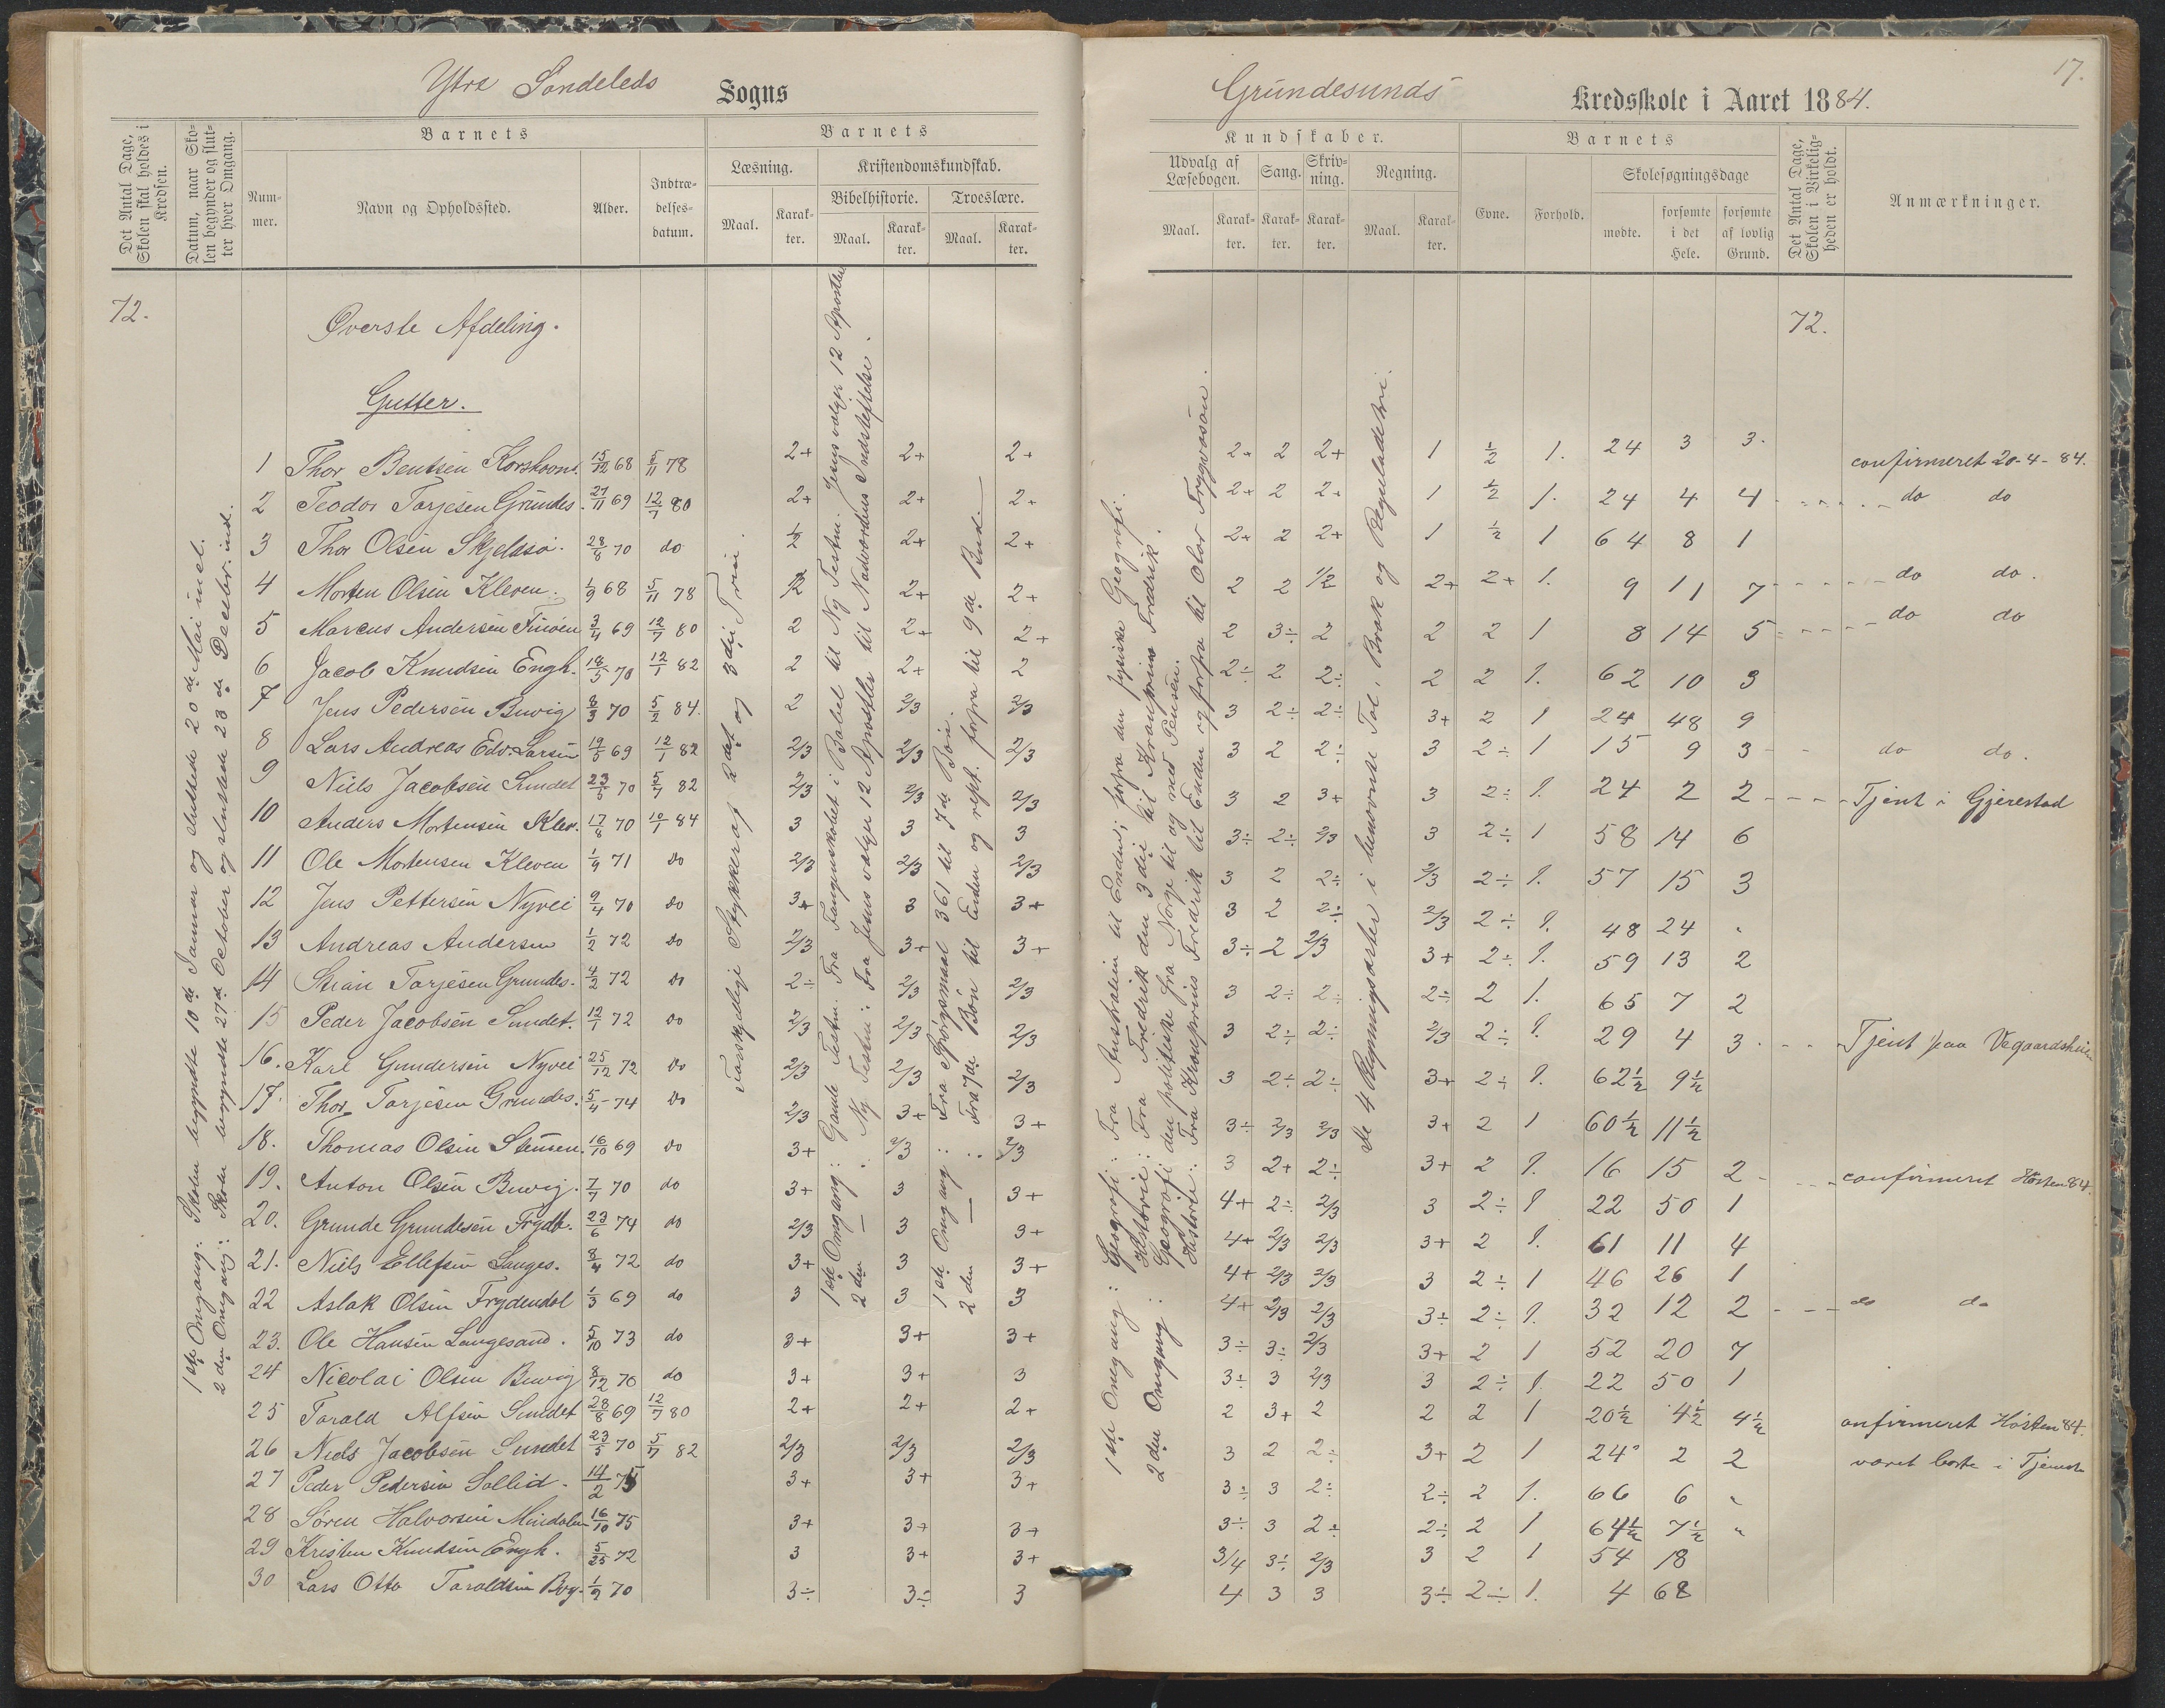 Ytre Søndeleds Sogns
Grundesunds Kredsskole i Aaret 1884.
17.
Det Antal Dage, Skolen skal holdes i Kredsen.
Datum, naar Skolen begynder og slutter hver Omgang.
Barnets
Nummer.
Navn og Opholdssted.
Alder.
Indtrædelsesdatum.
Barnets
Læsning.
Kristendomskundskab.
Bibelhistorie. Troeslære.
Maal. Karakter. Maal. Karakter. Maal. Karakter.
Kundskaber.
Udvalg af Læsebogen. Sang. Skrivning. Regning.
Maal. Karakter. Karakter. Karakter. Maal. Karakter.
Barnets
Evne. Forhold.
Skolesøgningsdage
mødte. forsømte i det Hele. forsømte af lovlig Grund.
Det Antal Dage, Skolen i Virkeligheden er holdt.
Anmærkninger.
72.
72.
Øverste Afdeling.
Gutter.
1ste Omgang: Skolen begyndte 10de Januar og sluttede 20de Mai incl.
2den Omgang: Skolen begyndte 27de October og sluttede 23de Decebr. incl.
Vanskelige Stykker af 2det og 3die Trin.
1ste Omgang: Gamle Testm. Fra Fangenskabet i Babel til Ny Testm. Jesus vælger 12 Apostler
2den — : Ny Testm: Fra Jesus vælger 12 Apostler til Nadverdens Indstiftelse.
1ste Omgang: Fra Spørgsmaal 361 til 7de Bøn.
2den — : Fra 7de Bøn til Enden og rept. forfra til 9de Bud.
1ste Omgang: Geografi: Fra Australien til Enden; forfra den fysiske Geografi.
Historie: Fra Fredrik den 3die til Kronprins Fredrik.
2den Omgang: Geografi: den politiske fra Norge til og med Pensen.
Historie: Fra Kronprins Fredrik til Enden og forfra til Olav Trygvasøn.
de 4 Regningsarter i benævnte Tal, Brøk og Reguladetri.
1 Thor Bentsen Korshavns. 15/12 68 5/11 78 2+ 2+ 2+ 2+ 2 2+ 1 1/2 1. 24 3 3. confirmeret 20-4-84.
2 Teodor Torjesen Grundes. 27/11 69 12/7 80 2+ 2+ 2+ 2+ 2 2+ 1 1/2 1. 24 4 4 do do
3 Thor Olsen Skjelsø. 28/8 70 do 1/2 2+ 2+ 2+ 2 2+ 1 1/2 1 64 8 1
4 Morten Olsen Kleven. 1/9 68 5/11 78 2 2+ 2+ 2 2 1/2 2+ 2+ 1. 9 11 7 do do.
5 Marcus Andersen Finøen 3/4 69 12/7 80 2 2+ 2+ 2 3÷ 2 2 2 1 8 14 5 do do
6 Jacob Knudsen Engh. 18/5 70 12/1 82 2 2+ 2 2÷ 2 2÷ 2 2 1. 62 10 3
7 Jens Pedersen Buvig 8/3 70 5/2 84. 2 2/3 2/3 3 2÷ 2÷ 3+ 2 1 24 48 9
8 Lars Andreas Edv. Larsen 19/5 69 12/1 82 2/3 2/3 2/3 3 2 2÷ 3 2÷ 1 15 9 3 do do.
9 Niels Jacobsen Sundet 23/5 70 5/7 82 2/3 2/3 2/3 3 2 3+ 3 2÷ 1. 24 2 2 Tjent i Gjerestad
10 Anders Mortensen Klev. 17/8 70 10/1 84 3 3 3 3÷ 2÷ 2/3 3 2÷ 1 58 14 6
11 Ole Mortensen Kleven 1/9 71 do 2/3 2/3 2/3 3 2 2÷ 2/3 2÷ 1. 57 15 3
12 Jens Pettersen Nyvei 9/4 70 do 3+ 3 3+ 3 2 2÷ 2/3 2÷ 1. 48 24 "
13 Andreas Andersen 1/2 72 do 2/3 3+ 3+ 3÷ 2 2/3 3+ 2÷ 1. 59 13 2
14 Stian Torjesen Grundes. 4/2 72 do 2÷ 2/3 2/3 3 2÷ 2÷ 2÷ 2 1. 65 7 2
15 Peder Jacobsen Sundet. 12/1 72 do 2/3 2/3 2/3 3 2÷ 2÷ 2/3 2÷ 1. 29 4 3 Tjent paa Vegaardsheien
16. Karl Gundersen Nyvei 25/12 72 do 2/3 2/3 2/3 3 2÷ 2÷ 3+ 2÷ 1. 62 1/2 9 1/2
17. Thor Torjesen Grundes. 5/4 74 do 2/3 3+ 3+ 3÷ 2/3 2/3 3+ 2 1 60 1/2 11 1/2
18. Thomas Olsen Stensen. 16/10 69 do 3+ 2/3 2/3 3 2+ 2÷ 3+ 2 1. 16 15 2 confirmeret Høsten 84.
19. Anton Olsen Buvig. 7/7 70 do 3+ 3 3+ 4+ 2÷ 2/3 3 2÷ 1 22 50 1
20. Grunde Grundesen Frydb. 23/6 74 do 2/3 3 3+ 4+ 2/3 2/3 3+ 2 1. 61 11 4
21. Niels Ellefsen Langes. 8/4 72 do 3+ 3 3+ 4+ 2/3 2/3 3 2÷ 1 46 26 1
22 Aslak Olsen Frydendal 1/3 69 do 3 3 3 4+ 2/3 2/3 3÷ 2÷ 1. 32 12 2 do do
23. Ole Hansen Langesand. 5/10 73 do 3+ 3+ 3+ 3÷ 3÷ 2/3 3+ 2 1 52 20 7
24 Nicolai Olsen Buvig 8/12 70 do 3+ 3+ 3 3÷ 3 2/3 3 2÷ 1. 22 50 1
25 Torald Alfsen Sundet 28/8 69 12/7 80 2+ 2+ 2+ 2 3+ 2 2 2 1 20 1/2 4 1/2 4 1/2 onfirmeret Høsten 84.
26 Niels Jacobsen Sundet 23/5 70 5/7 82 2/3 2/3 2/3 3 2 2÷ 3+ 2 1 24 2 2 været borte i Tjeneste
27 Peder Pedersen Sollid. 14/2 75 3+ 3+ 3+ 3÷ 3 2÷ 2÷ 2 1. 66 6 "
28 Søren Halvorsen Mindalen 16/10 75 3+ 3+ 3+ 3÷ 3 2÷ 2÷ 2 1 64 1/2 7 1/2 "
29 Kristen Knudsen Engh. 5/25 72 3 3+ 3+ 3/4 3÷ 2/3 3 2 1 54 18
30 Lars Otto Taraldsen 1/9 70 3÷ 3÷ 3 4 3 3 3÷ 2÷ 1. 4 68